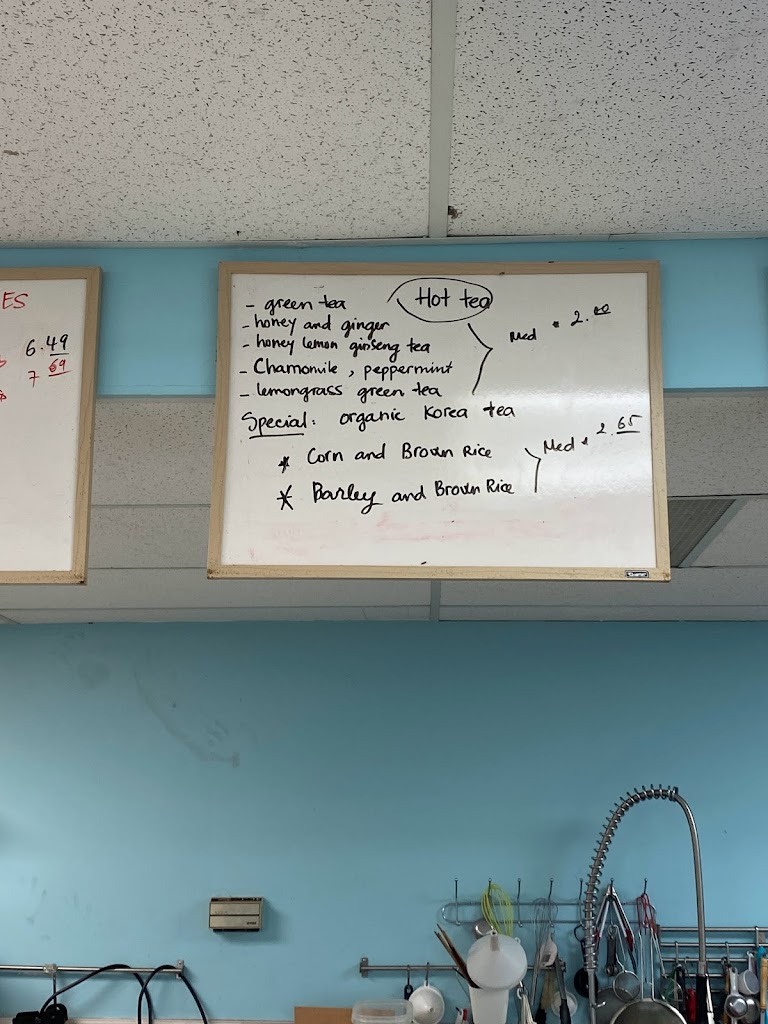 ES
6.49
7 69
Hot tea
- green tea
- honey and ginger
- honey lemon ginseng tea
- Chamomile, peppermint
- lemongrass green tea
Med * 2.00
Special: organic Korea tea
* Corn and Brown Rice
* Barley and Brown Rice
Med * 2.65